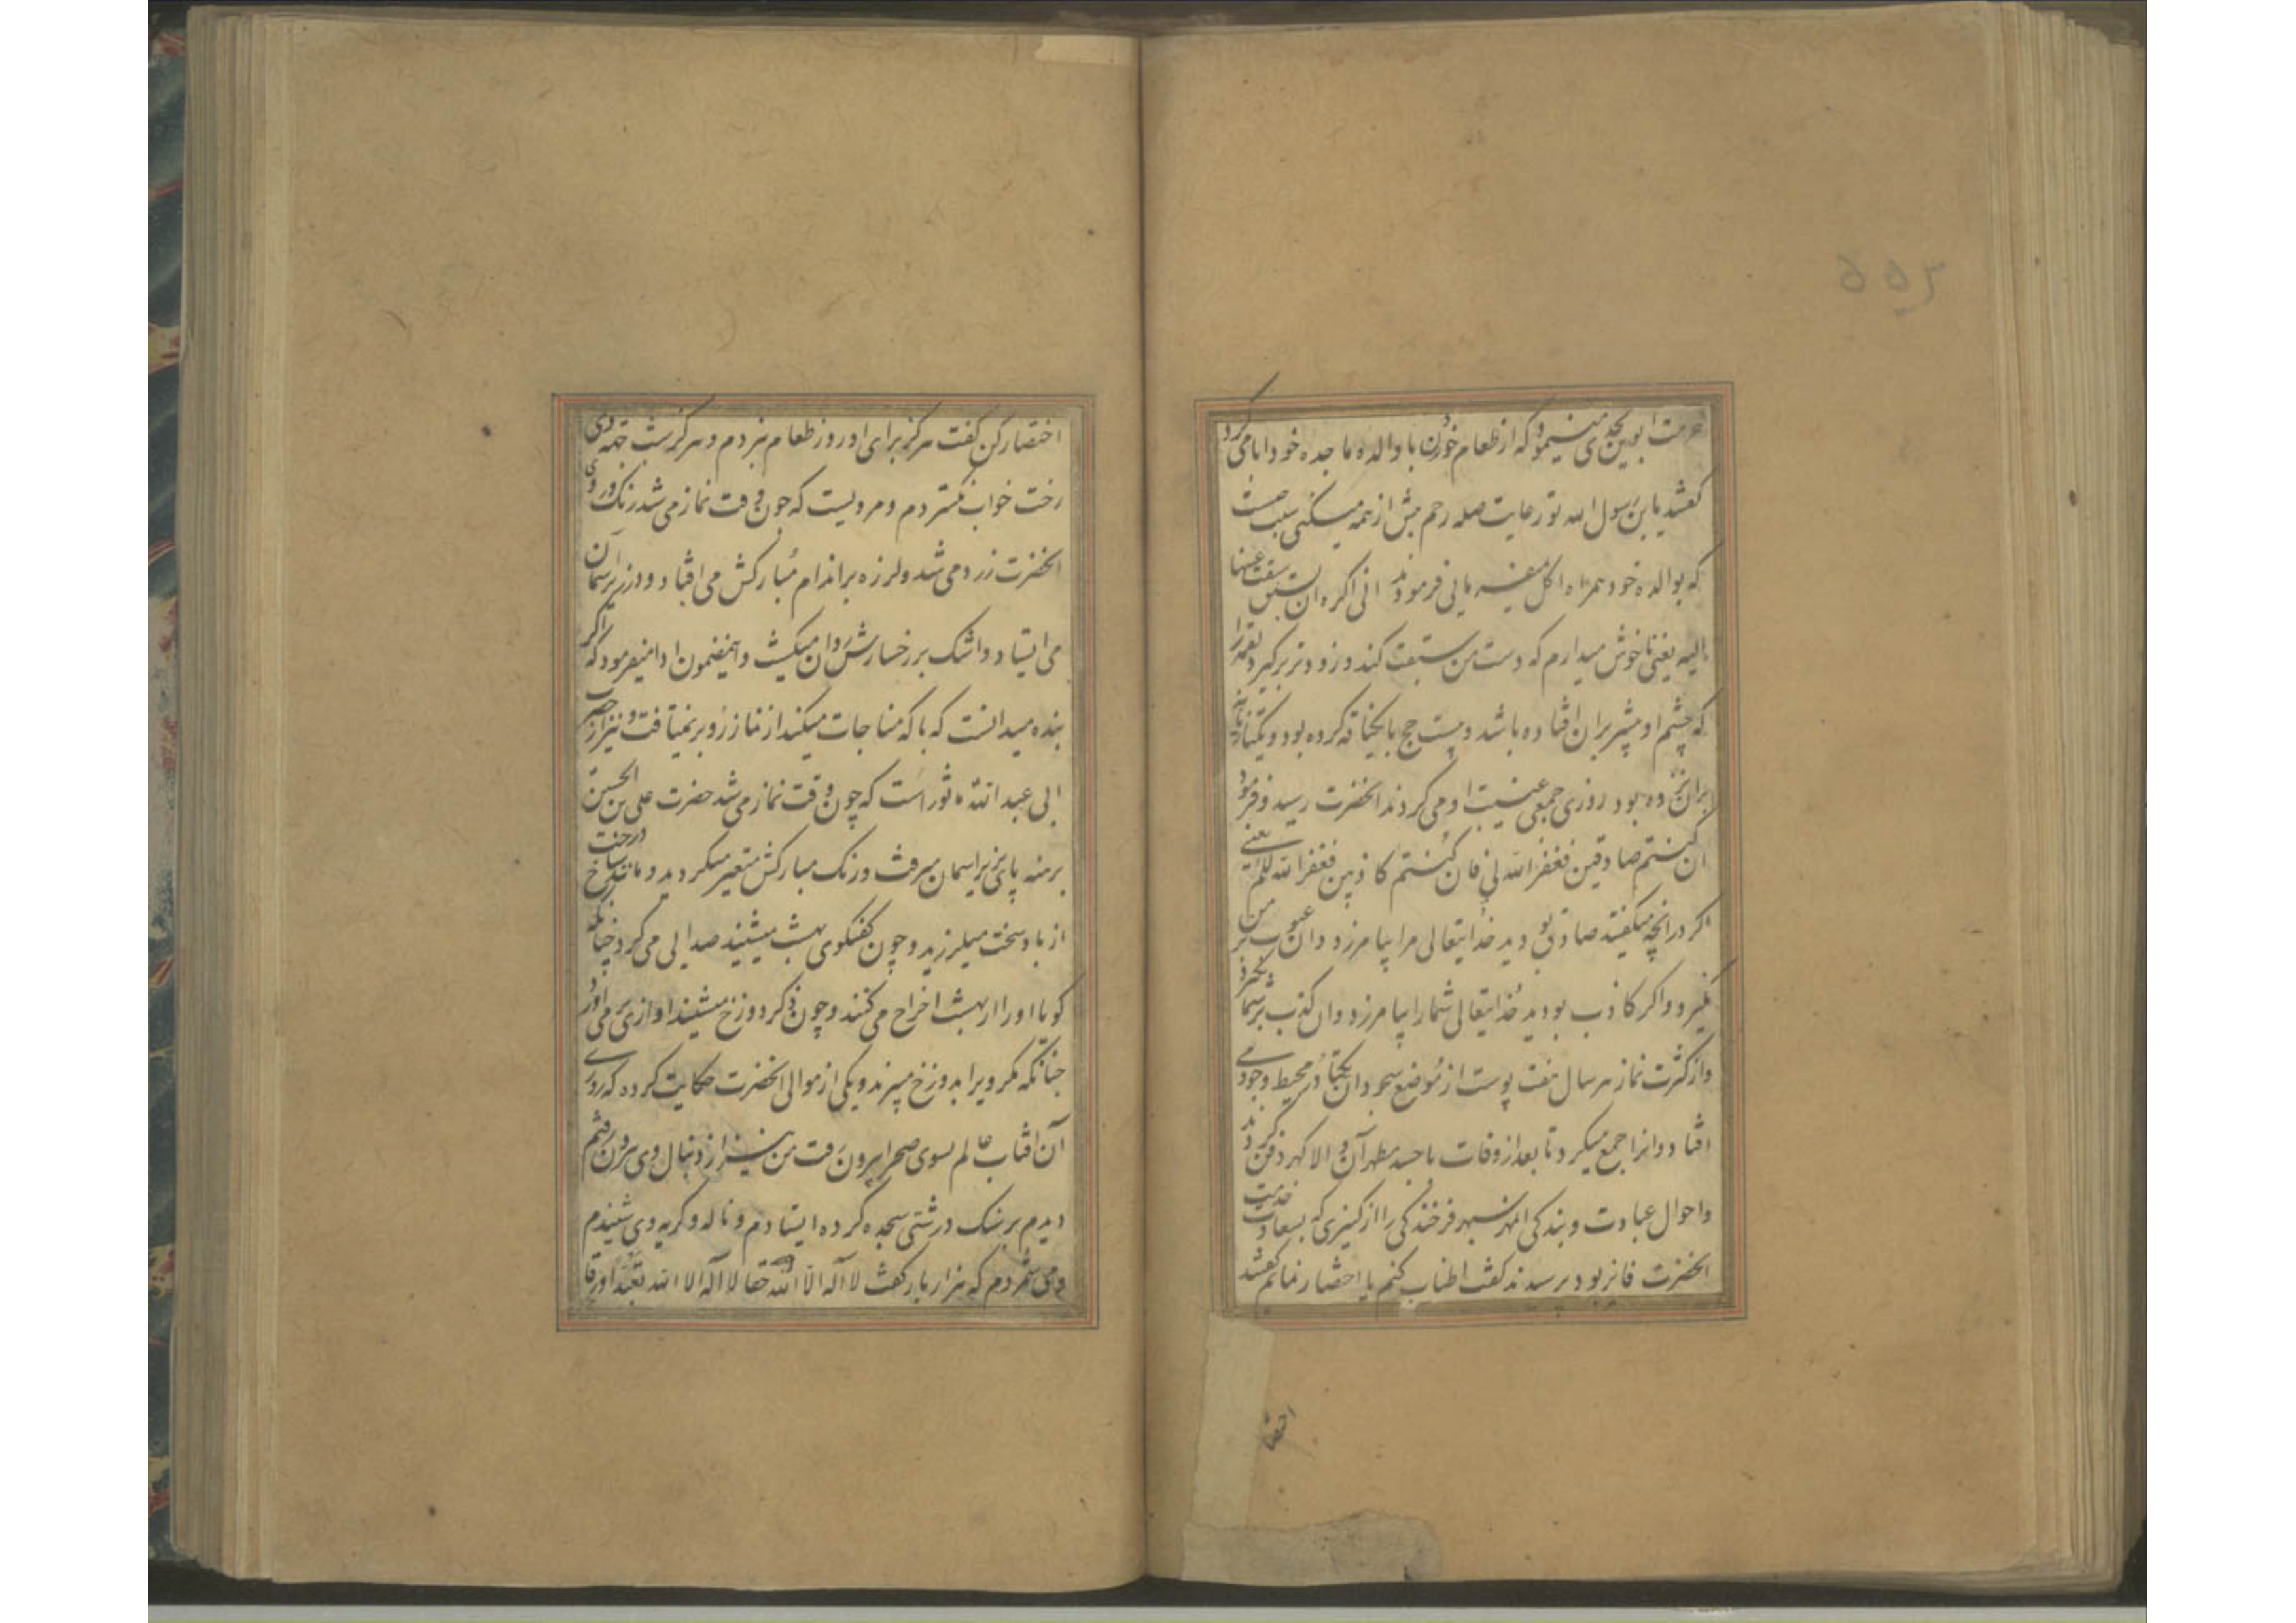 حرمت ابوین بحدی مینمود که از طعام خوردن با والده ماجده خود ابا می کرد
گفتند یا بن رسول الله تو رعایت صله رحم بیش از همه میکنی سبب چیست
که بوالده خود همراه اکل نمی فرمایی فرمودند انی اکره ان تسبق یدی ما سبقت عینها
الیه یعنی ناخوش میدارم که دست من سبقت کند و زودتر برگیرد لقمه را
که چشم او پیشتر بران افتاده باشد و بیست حج با یکناقه کرده بود و یکتازیانه
بران نزده بود روزی جمعی غیبت او می کردند انحضرت رسید و فرمود
ان کنتم صادقین فغفر الله لی فان کنتم کاذبین فغفر الله لکم یعنی
اکر در انچه میگفتید صادق بودید خدایتعالی مرا بیامرزد و ان عیوب بر من
نگیرد و اکر کاذب بودید خدایتعالی شما را بیامرزد و ان کذب بر شما نگیرد
و از کثرت نماز هر سال هفت پوست از موضع سجود ان یکتا در محیط وجودی
افتاد و انرا جمع میکرد تا بعد از وفات با جسد مطهر آن والا گهر دفن کردند
و احوال عبادت و بندگی المهر سپهر فرخندگی را از کنیزی که بسعادت خدمت
انحضرت فایز بود پرسیدند گفت اطناب کنم یا اختصار نمایم گفتند
اختصا
اختصار کن گفت هرگز برای او روز طعام نبردم و هرگز شب جهة وی
رخت خواب نگستردم و مرویست که چون وقت نماز می شد رنک و روی
انحضرت زرد می شد و لرزه بر اندام مبارکش می افتاد و در زیر آسمان
می ایستاد و اشک بر رخسارش روان میکشت و اینمضمون ادا میفرمود که اگر
بنده میدانست که با که مناجات میکند از نماز رو بر نمیتافت و نیز از حضرت
ابی عبد الله ماثور است که چون وقت نماز می شد حضرت علی بن الحسین
برهنه پای زیر اسمان میرفت و رنک مبارکش متغیر میکردید و مانند شاخ درخت
از باد سخت میلرزید و چون گفتگوی بهشت میشنید صدایی می کرد چنانکه
گویا او را از بهشت اخراج می کنند و چون ذکر دوزخ میشنید اوازی بر می آورد
چنانکه مگر ویرا بدوزخ میبرند و یکی از موالی انحضرت حکایت کرده که روزی
آن افتاب عالم بسوی صحرا بیرون رفت من نیز از دنبال وی بیرون رفتم
دیدم بر سنک درشتی سجده کرده ایستادم و ناله و گریه وی شنیدم
و می شمردم که هزار بار گفت لا اله الا الله حقا حقا لا اله الا الله تعبدا و رقا